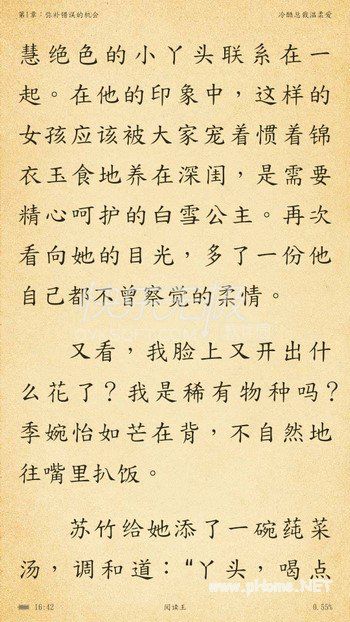 第1章：弥补错误的机会 冷酷总裁温柔爱
慧绝色的小丫头联系在一
起。在他的印象中，这样的
女孩应该被大家宠着惯着锦
衣玉食地养在深闺，是需要
精心呵护的白雪公主。再次
看向她的目光，多了一份他
自己都不曾察觉的柔情。
又看，我脸上又开出什
么花了？我是稀有物种吗？
季婉怡如芒在背，不自然地
往嘴里扒饭。
苏竹给她添了一碗莼菜
汤，调和道：“丫头，喝点
www.pHome.NET
16:42 阅读王 0.55%